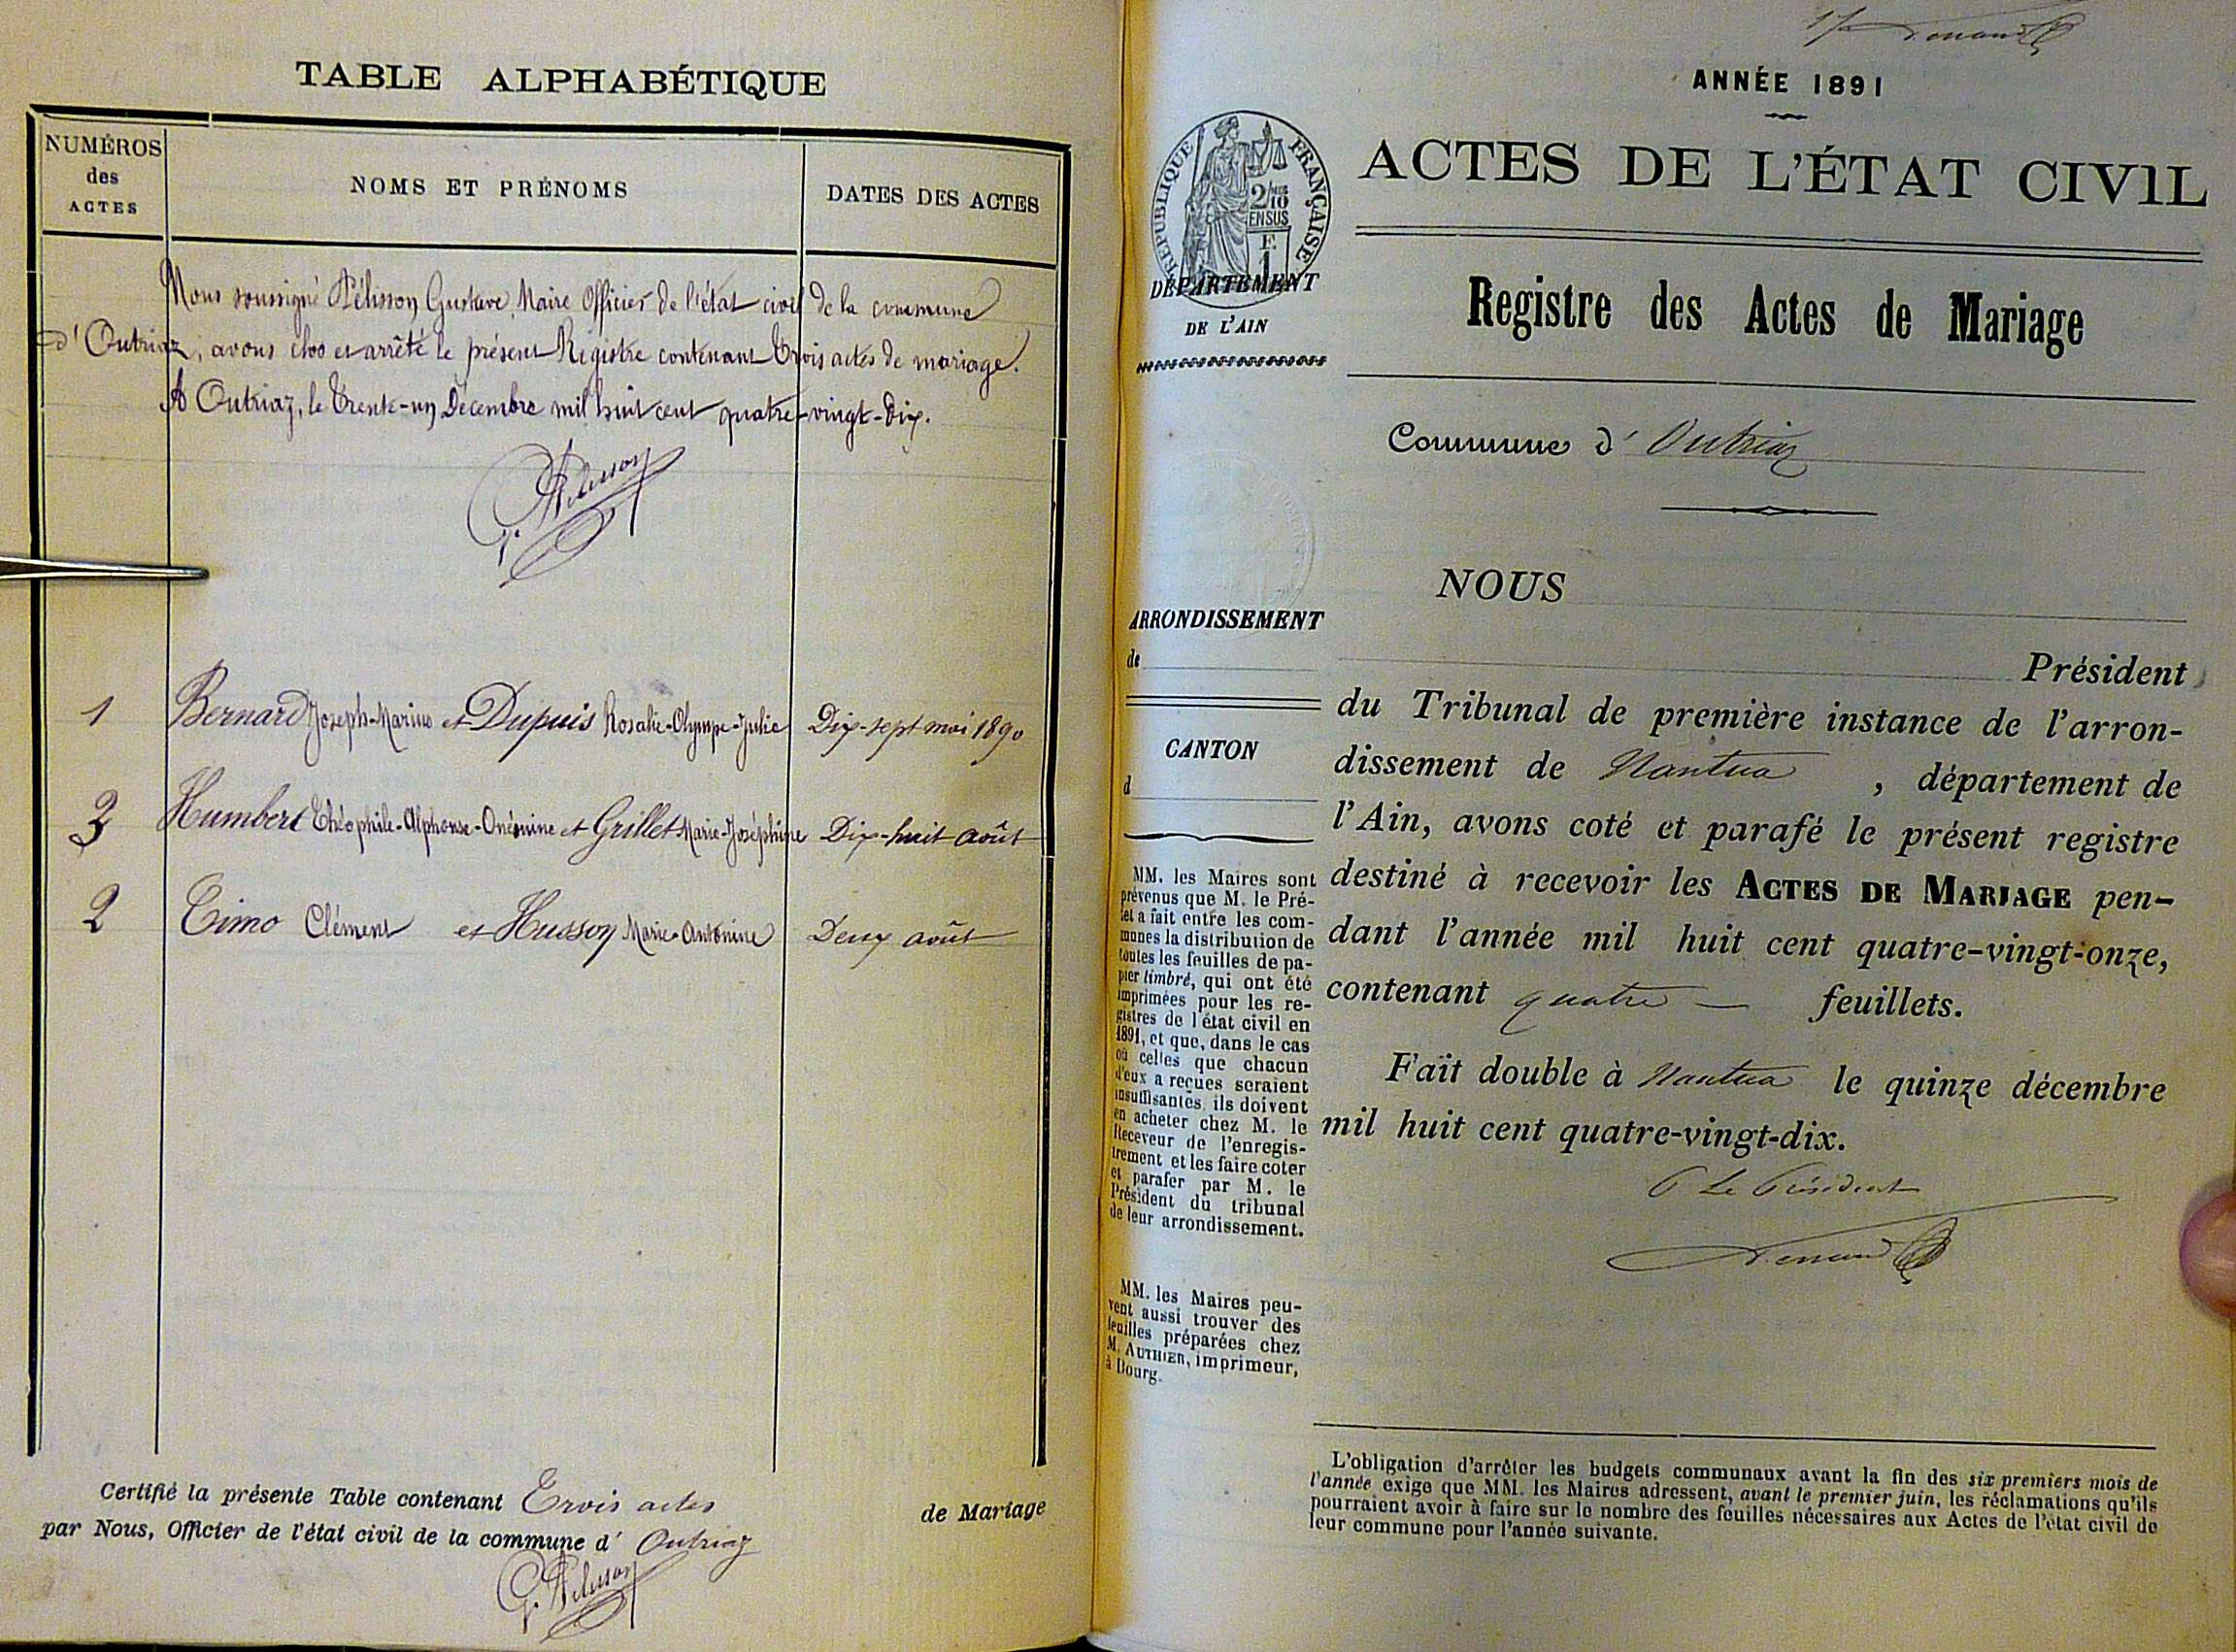 TABLE ALPHABÉTIQUE
NUMÉROS
des
ACTES
NOMS ET PRÉNOMS
DATES DES ACTES
Nous soussigné Pélisson Gustave, Maire Officier de l'état civil de la commune
d'Outriaz, avons clos et arrêté le présent Registre contenant Trois actes de mariage.
A Outriaz, le Trente-un Décembre mil huit cent quatre-vingt-dix.
G. Pélisson
1 Bernard Joseph-Marius et Dupuis Rosalie-Olympe-Julie Dix-sept mai 1890
3 Humbert Théophile-Alphonse-Onésime et Grillet Marie-Joséphine Dix-huit août
2 Timo Clément et Husson Marie-Antonine Deux août
Certifié la présente Table contenant Trois actes de Mariage
par Nous, Officier de l'état civil de la commune d' Outriaz
G. Pélisson
1er
ANNÉE 1891
RÉPUBLIQUE FRANÇAISE
2/10
EN SUS
DÉPARTEMENT
DE L'AIN
ACTES DE L'ÉTAT CIVIL
Registre des Actes de Mariage
Commune d' Outriaz
NOUS
ARRONDISSEMENT
de
CANTON
d
Président
du Tribunal de première instance de l'arron-
dissement de Nantua , département de
l'Ain, avons coté et parafé le présent registre
destiné à recevoir les ACTES DE MARIAGE pen-
dant l'année mil huit cent quatre-vingt-onze,
contenant quatre — feuillets.
Fait double à Nantua le quinze décembre
mil huit cent quatre-vingt-dix.
P Le Président
MM. les Maires sont
prévenus que M. le Pré-
fet a fait entre les com-
munes la distribution de
toutes les feuilles de pa-
pier timbré, qui ont été
imprimées pour les re-
gistres de l'état civil en
1891, et que, dans le cas
où celles que chacun
d'eux a reçues seraient
insuffisantes, ils doivent
en acheter chez M. le
Receveur de l'enregis-
trement et les faire coter
et parafer par M. le
Président du tribunal
de leur arrondissement.
MM. les Maires peu-
vent aussi trouver des
feuilles préparées chez
M. AUTHIER, imprimeur,
à Bourg.
L'obligation d'arrêter les budgets communaux avant la fin des six premiers mois de
l'année exige que MM. les Maires adressent, avant le premier juin, les réclamations qu'ils
pourraient avoir à faire sur le nombre des feuilles nécessaires aux Actes de l'état civil de
leur commune pour l'année suivante.